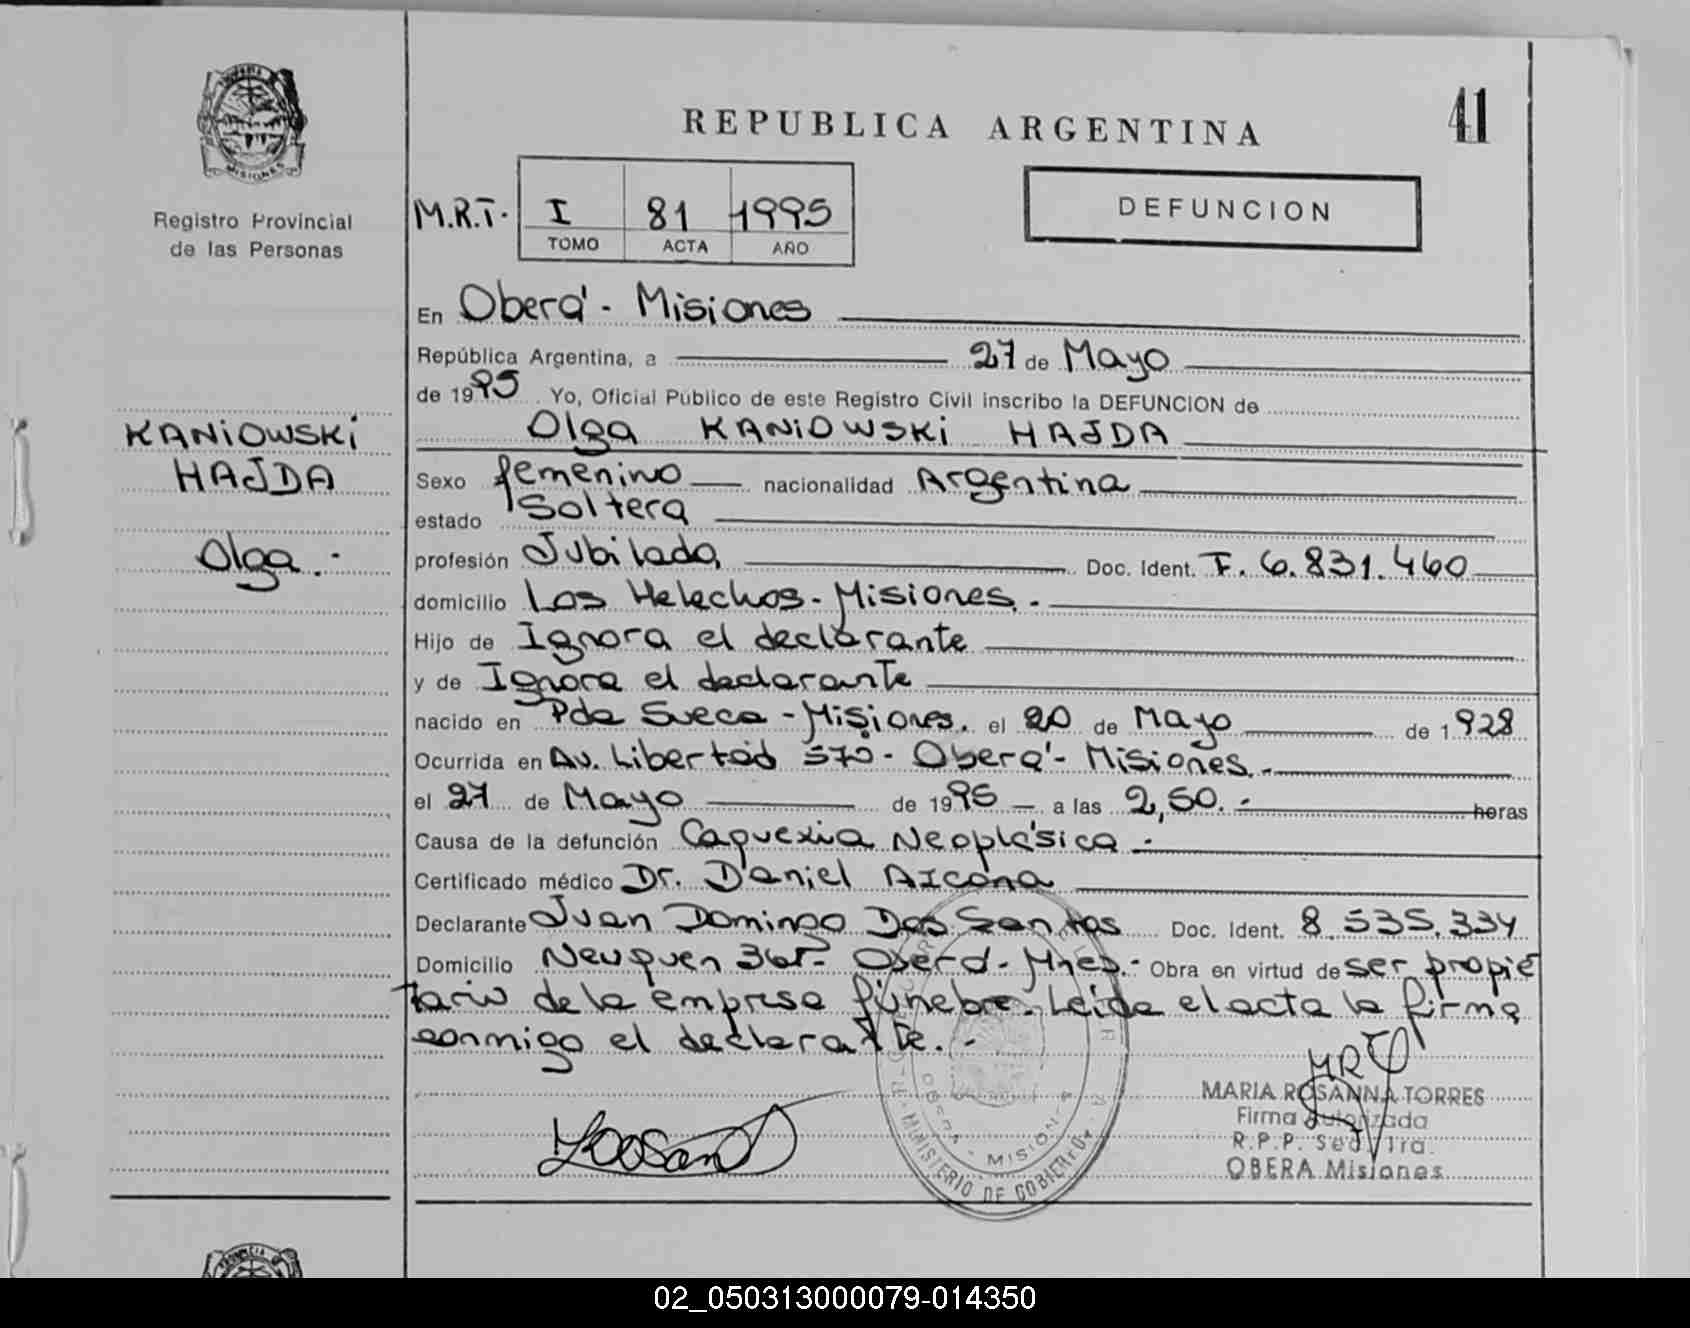 41
REPUBLICA ARGENTINA
MISIONES
Registro Provincial
de las Personas
M.R.T. I 81 1995
TOMO ACTA AÑO
DEFUNCION
En Oberá - Misiones
República Argentina, a 27 de Mayo
de 1995 Yo, Oficial Público de este Registro Civil inscribo la DEFUNCION de
KANIOWSKI
HAJDA
Olga.-
Olga KANIOWSKI HAJDA
Sexo femenino nacionalidad Argentina
estado Soltera
profesión Jubilada Doc. Ident. F. 6.831.460
domicilio Los Helechos - Misiones.-
Hijo de Ignora el declarante
y de Ignora el declarante
nacido en Pda Sueca - Misiones. el 20 de Mayo de 1.928
Ocurrida en Av. Libertad 570 - Oberá - Misiones.-
el 27 de Mayo de 1995 a las 2,50.- horas
Causa de la defunción Caquexia Neoplásica.-
Certificado médico Dr. Daniel Azcona
Declarante Juan Domingo Dos Santos Doc. Ident. 8.535.334
Domicilio Neuquen - Oberá - Mnes.- Obra en virtud de ser propie
tario de la empresa fúnebre. Leída el acta la firma
conmigo el declarante.-
MINISTERIO DE GOBIERNO
OBERA - MISIONES
MARIA ROSANNA TORRES
Firma Autorizada
R.P.P. Sec. 1ra.
OBERA Misiones
02_050313000079-014350